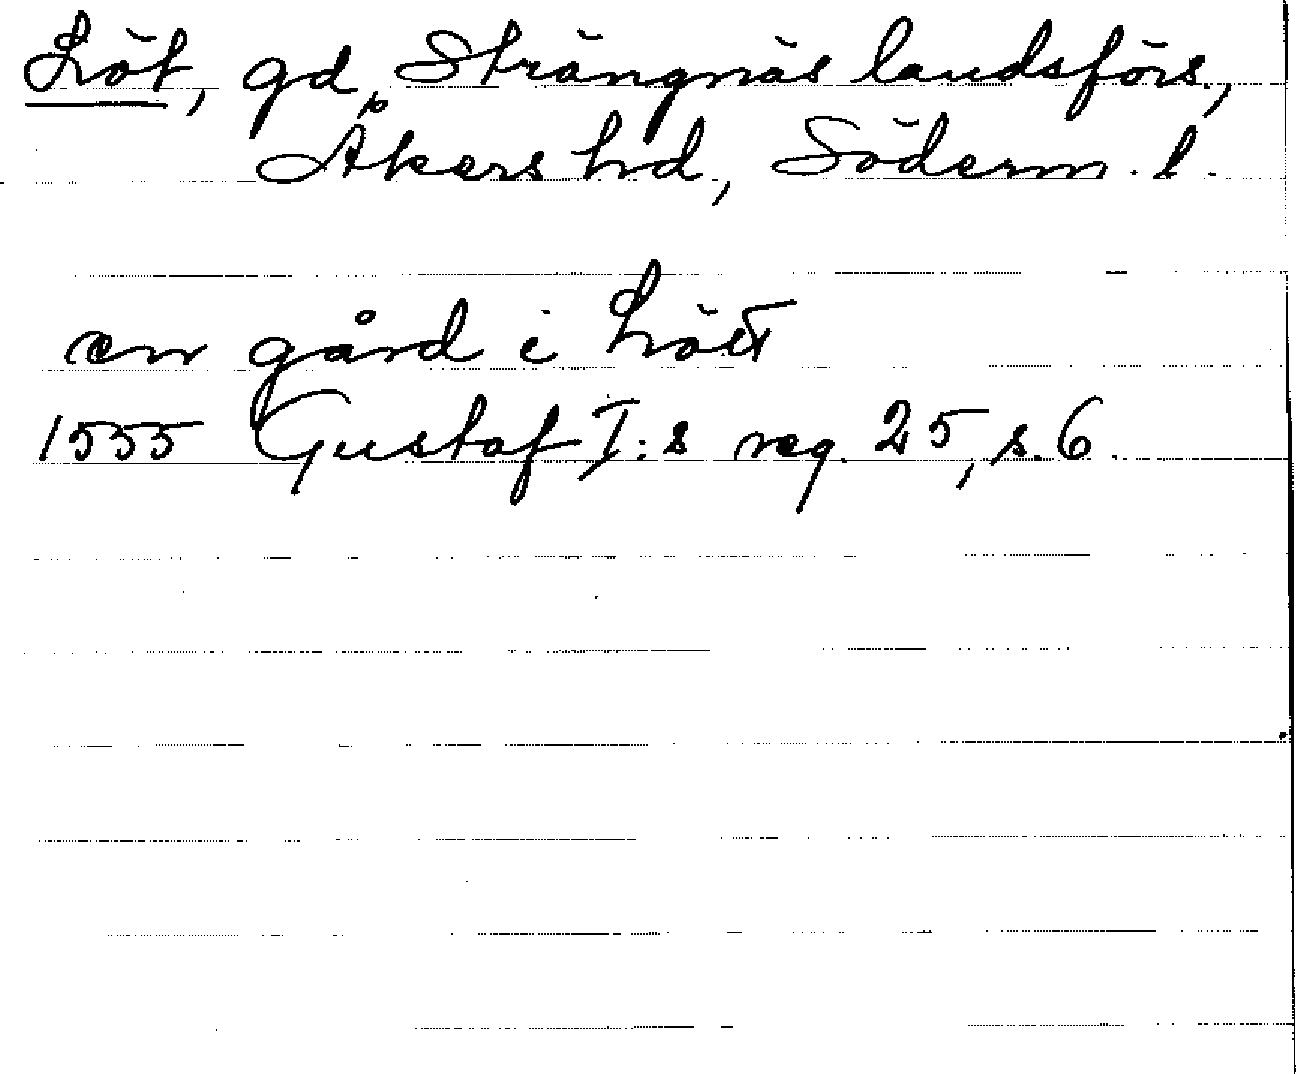 Löt, gd, Strängnäs landsförs.,
Åkers hd, Söderm. l.
en gård i Lött
1555 Gustaf I:s reg. 25, s. 6.